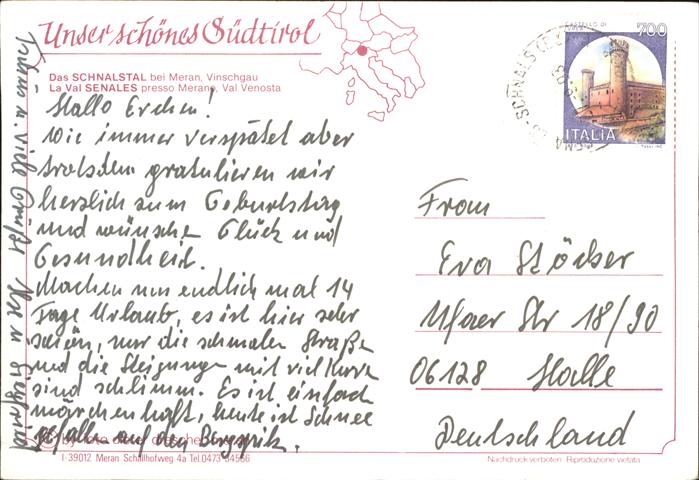 Unser schönes Südtirol
Das SCHNALSTAL bei Meran, Vinschgau
La Val SENALES presso Merano, Val Venosta
Hallo Evchen!
Wie immer verspätet aber
trotzdem gratulieren wir
herzlich zum Geburtstag
und wünschen Glück und
Gesundheit.
Machen nun endlich mal 14
Tage Urlaub, es ist hier sehr
schön, nur die schmalen Straßen
und die Steigungen mit viel Kurven
sind schlimm. Es ist einfach
märchenhaft, heute ist Schnee
gefallen auf den
viele Grüße
u. Siegfried
I-39012 Meran Schallhofweg 4a Tel.0473
CASTELLO DI
700
ITALIA
SCHNALSTAL
Frau
Eva Stöcker
Ufaer Str 18/90
06128 Halle
Deutschland
Nachdruck verboten · Riproduzione vietata